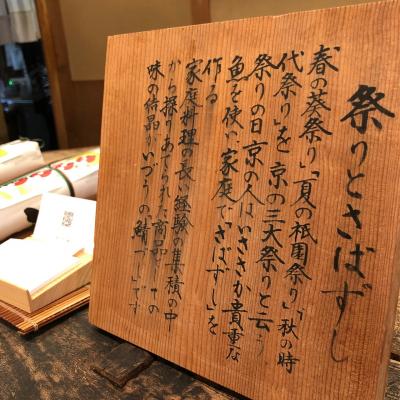 祭りとさばずし
春の葵祭り」「夏の祇園祭り」「秋の時
代祭り」を 京の三大祭りと云う
祭りの日京の人はいささか貴重な
魚を使い家庭で「さばずし」を
作る
家庭料理の長い経験の集積の中
から探りあてられた商品としての
味の結晶がいづうの「鯖ずし」です